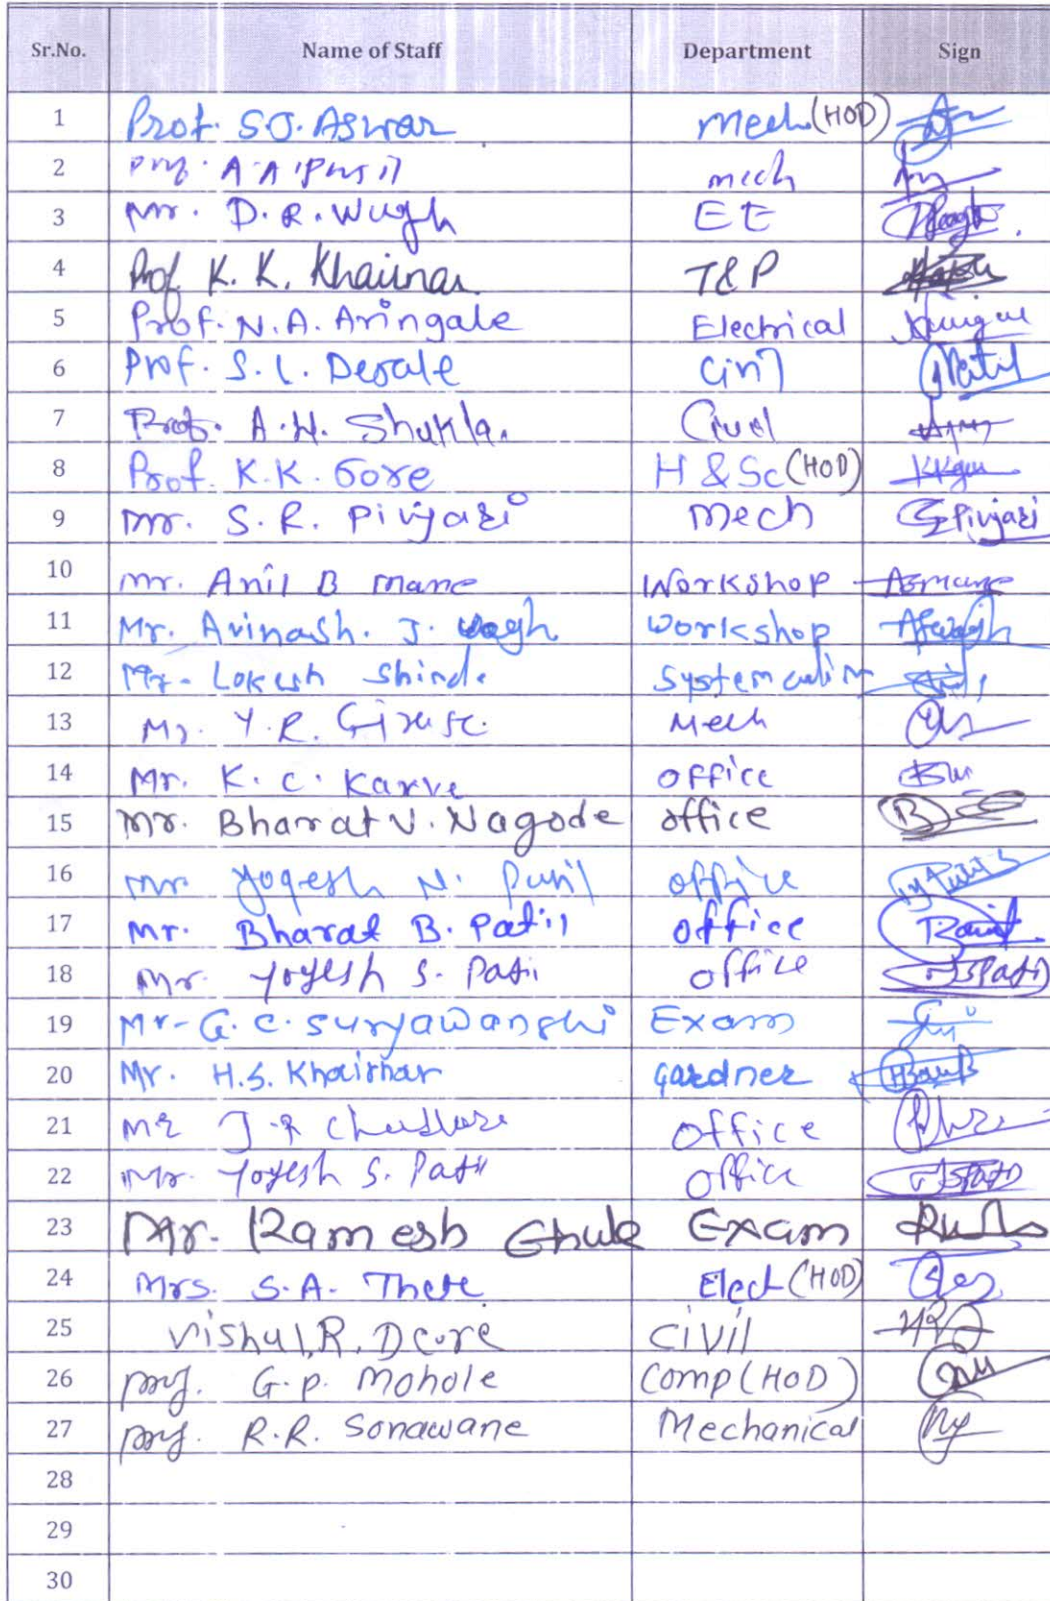 Sr.No. Name of Staff Department Sign
1 Prof. S.J. Aswar Mech (HOD)
2 Prof. A.A. Patil mech
3 Mr. D.R. Wagh EE
4 Prof K. K. Khairnar T&P
5 Prof. N.A. Aringale Electrical
6 Prof. S.L. Desale Civil
7 Prof. A.H. Shukla. Civil
8 Prof. K.K. Gore H & Sc (HOD) KKgore
9 Mr. S.R. Pinjari Mech SPinjari
10 Mr. Anil B Mane Workshop
11 Mr. Avinash. J. Wagh Workshop AJwagh
12 Mr. Lokesh Shinde System admin
13 Mr. Y.R. Girase. Mech
14 Mr. K.C. Karve office
15 Mr. Bharat V. Nagode office
16 Mr Yogesh N. Patil office
17 Mr. Bharat B. Patil office
18 Mr. Yogesh S. Patil office YSPatil
19 Mr. G.C. Suryawanshi Exam
20 Mr. H.S. Khairnar gardner
21 Mr J.R Chaudhari office
22 Mr. Yogesh S. Patil office YSPatil
23 Mr. Ramesh Ghule Exam
24 Mrs. S.A. Thete Elect (HOD)
25 Vishal.R. Deore CIVIL
26 prof. G.P. Mohole Comp (HOD)
27 prof. R.R. Sonawane Mechanical
28
29
30